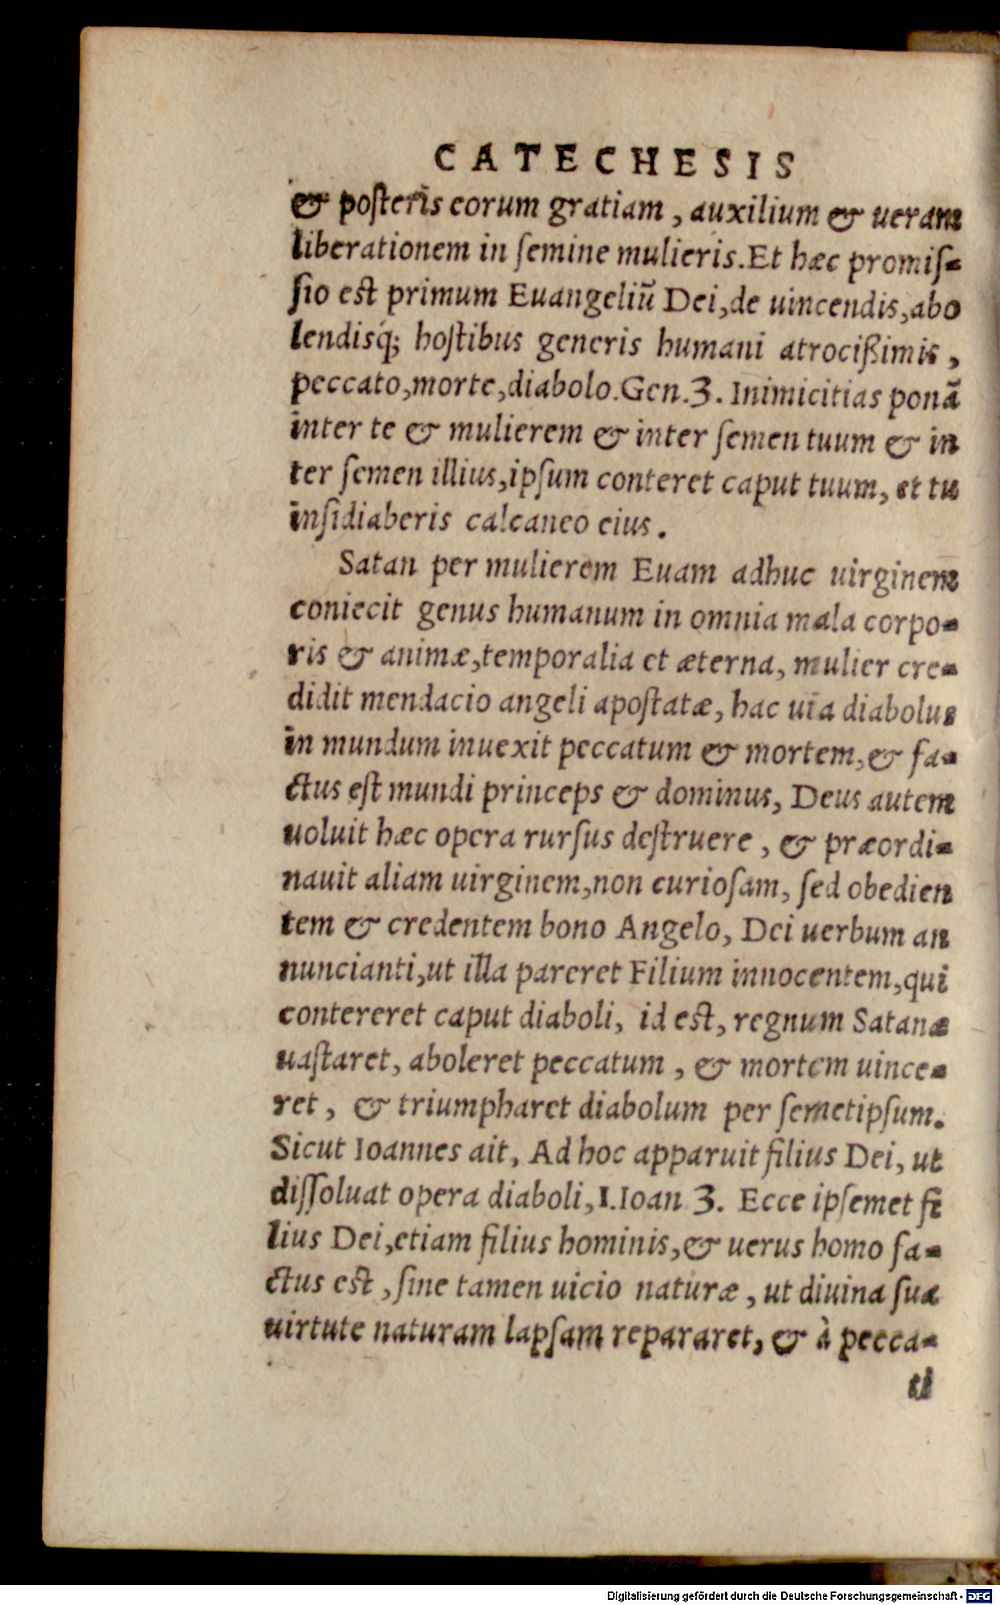 CATECHESIS
& posteris eorum gratiam, auxilium & ueram
liberationem in semine mulieris. Et hæc promis-
sio est primum Euangeliū Dei, de uincendis, abo
lendisq́; hostibus generis humani atrocißimis,
peccato, morte, diabolo. Gen. 3. Inimicitias ponā
inter te & mulierem & inter semen tuum & in
ter semen illius, ipsum conteret caput tuum, et tu
insidiaberis calcaneo eius.
Satan per mulierem Euam adhuc uirginem
coniecit genus humanum in omnia mala corpo-
ris & animæ, temporalia et æterna, mulier cre-
didit mendacio angeli apostatæ, hac uia diabolus
in mundum inuexit peccatum & mortem, & fa-
ctus est mundi princeps & dominus, Deus autem
uoluit hæc opera rursus destruere, & præordi-
nauit aliam uirginem, non curiosam, sed obedien
tem & credentem bono Angelo, Dei uerbum an
nuncianti, ut illa pareret Filium innocentem, qui
contereret caput diaboli, id est, regnum Satanæ
uastaret, aboleret peccatum, & mortem uince-
ret, & triumpharet diabolum per semetipsum.
Sicut Ioannes ait, Ad hoc apparuit filius Dei, ut
dissoluat opera diaboli, 1. Ioan 3. Ecce ipsemet fi
lius Dei, etiam filius hominis, & uerus homo fa-
ctus est, sine tamen uicio naturæ, ut diuina sua
uirtute naturam lapsam repararet, & à pecca-
ti
Digitalisierung gefördert durch die Deutsche Forschungsgemeinschaft - DFG